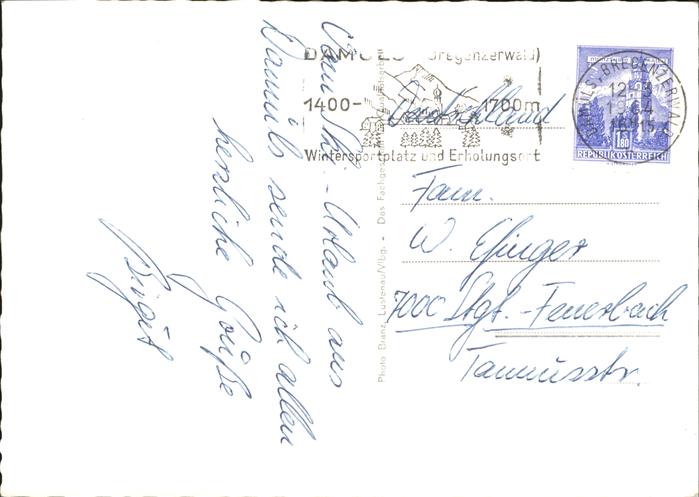 Vom Ski-Urlaub aus
Damüls sende ich allen
herzliche Grüße
Birgit
DAMÜLS (Bregenzerwald)
1400- 1700m
Wintersportplatz und Erholungsort
DAMÜLS, BREGENZERWALD
REPUBLIK ÖSTERREICH
1.80
Photo Branz, Lustenau/Vlbg. - Das Fachgeschäft
Deutschland
Fam.
W.
7000 Stgt.-Feuerbach
Taunusstr.